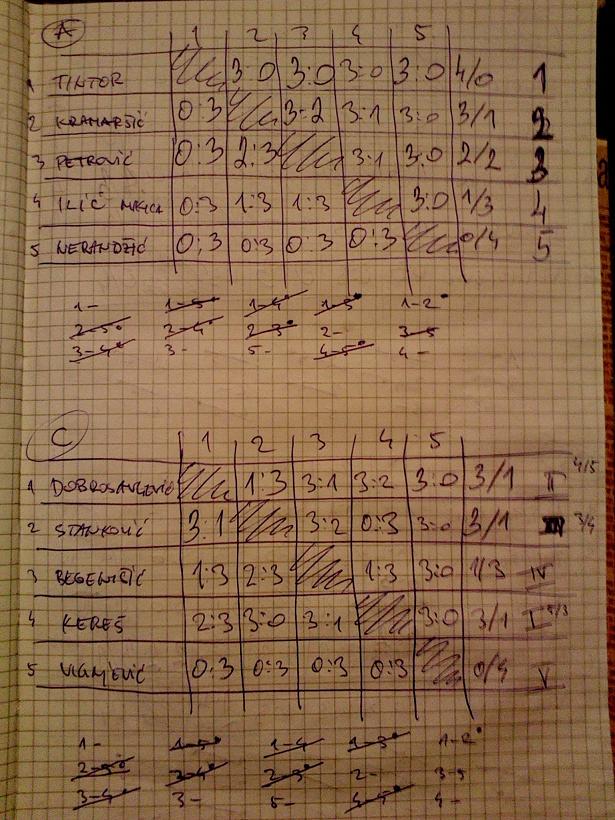 A 1 2 3 4 5
1 TINTOR 3:0 3:0 3:0 3:0 4/0 1
2 KRAMARŠIĆ 0:3 3:2 3:1 3:0 3/1 2
3 PETROVIĆ 0:3 2:3 3:1 3:0 2/2 3
4 ILIĆ 0:3 1:3 1:3 3:0 1/3 4
5 NERANDŽIĆ 0:3 0:3 0:3 0:3 0/4 5
1- 1-5 1-4 1-3 1-2
2-5 2-4 2-3 2- 3-5
3-4 3- 5- 4-5 4-
C 1 2 3 4 5
1 DOBROSAVLJEVIĆ 1:3 3:1 3:2 3:0 3/1 II 4/5
2 STANKOVIĆ 3:1 3:2 0:3 3:0 3/1 III 3/4
3 1:3 2:3 1:3 3:0 1/3 IV
4 KEREŠ 2:3 3:0 3:1 3:0 3/1 I 5/3
5 0:3 0:3 0:3 0:3 0/4 V
1- 1-5 1-4 1-3 1-2
2-5 2-4 2-3 2- 3-5
3-4 3- 5- 4-5 4-